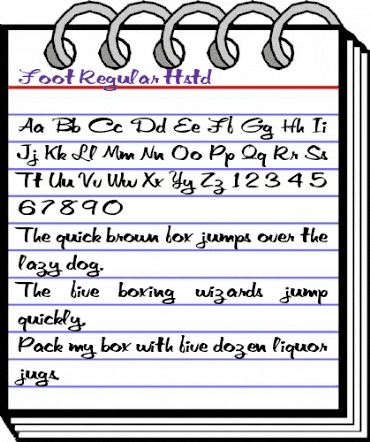 Foot Regular Hstd
Aa Bb Cc Dd Ee Ff Gg Hh Ii
Jj Kk Ll Mm Nn Oo Pp Qq Rr Ss
Tt Uu Vv Ww Xx Yy Zz 1 2 3 4 5
6 7 8 9 0
The quick brown fox jumps over the
lazy dog.
The five boxing wizards jump
quickly.
Pack my box with five dozen liquor
jugs.